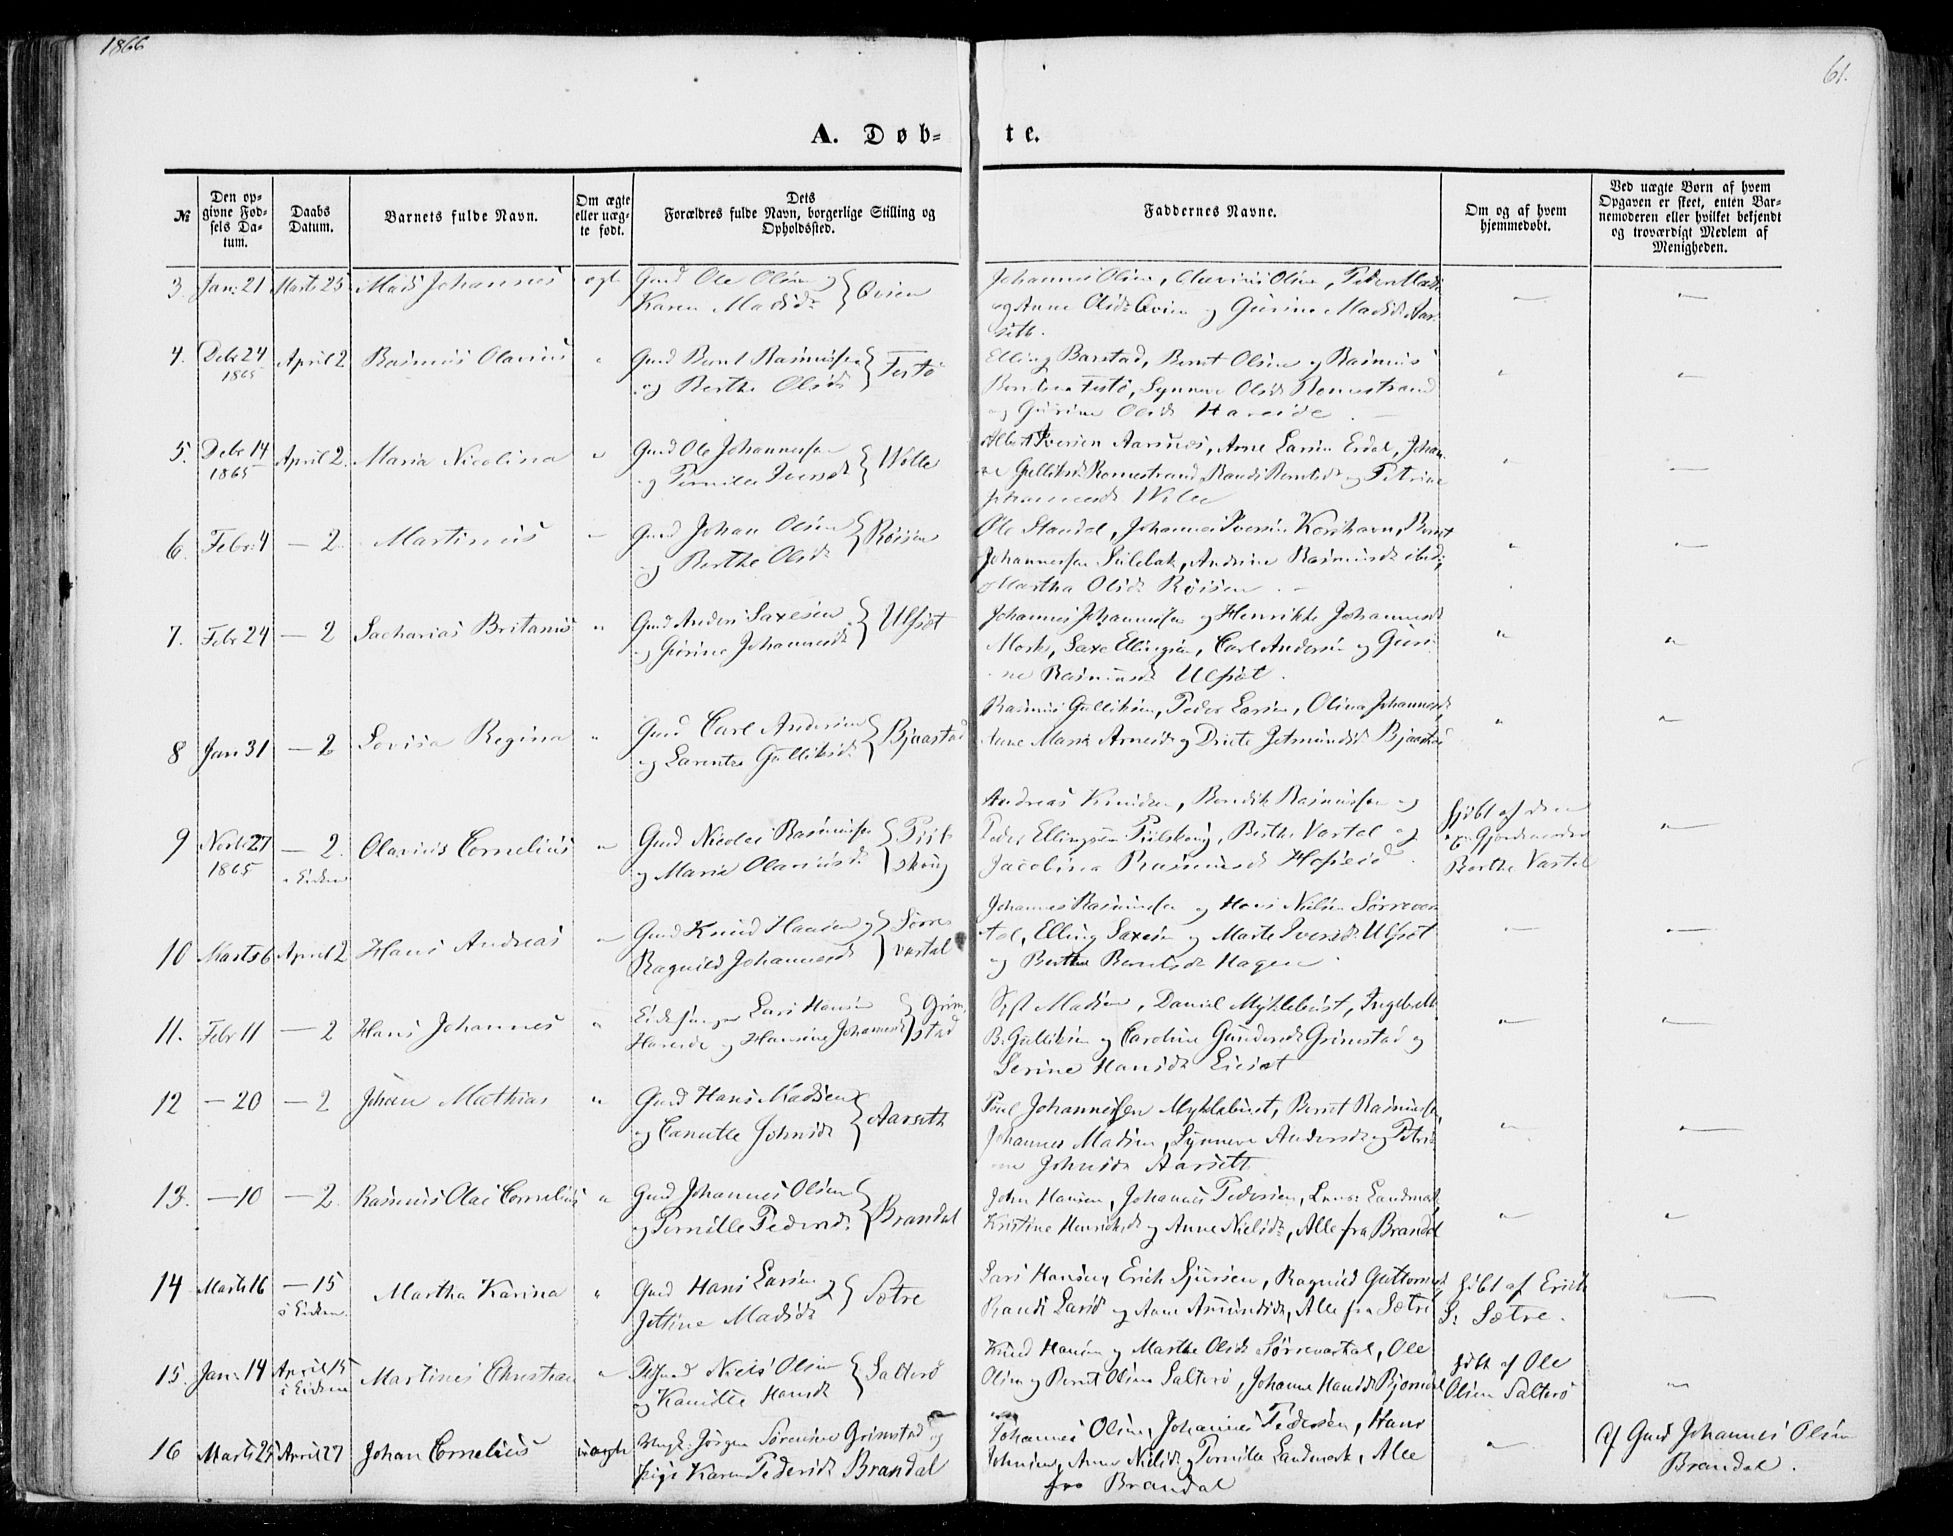 1866
61.
A. Døb-
te.
№
Den op-
givne Fød-
sels Da-
tum.
Daabs
Datum.
Barnets fulde Navn.
Om ægte
eller uæg-
te født.
Dets
Forældres fulde Navn, borgerlige Stilling og
Opholdssted.
Faddernes Navne.
Om og af hvem
hjemmedøbt.
Ved uægte Børn af hvem
Opgaven er skeet, enten Bar-
nemoderen eller hvilket bekjendt
og troværdigt Medlem af
Menigheden.
3. Jan: 21 Marts 25 Mads Johannes ægte Gmd Ole Olsen og
Karen Madsd: Qvien
Johannes Olsen, Olavius Olsen, Peder Mads
og Anne Olsd: Qvien og Gurine Madsd: Aar-
seth.
4. Debr 24 1865 April 2 Rasmus Olavius " Gmd Bernt Rasmussen
og Berthe Olsd: Festø
Elling Barstad, Bernt Olsen og Rasmus
Berntsen Festø, Synneve Olsd: Romestrand
og Gurine Olsd: Hareide
5. Debr 14 1865 April 2. Maria Nicolina " Gmd Ole Johannessen
og Pernille Iversd:
Albert Iversen Aarsnes, Arne Larsen Eidal, Johan-
ne Gulliksd: Romestrand, Randi Berntsd: og Petrine
Johannesd:
6. Febr: 4 — 2 Martinus " Gmd Johan Olsen
og Berthe Olsd: Røisen
Ole Standal, Johannes Iversen Korshavn, Bernt
Johannessen Sulebak, Andrine Rasmusd: ibid:
og Martha Olsd: Røisen
7. Febr 24 — 2 Sacharias Britanus " Gmd Anders Saxesen
og Gurine Johannesd: Ulfset
Johannes Johannessen og Henrikke Johannesd:
Mork, Saxe Ellingsen, Carl Andersen og Guri-
ne Rasmusd: Ulfset.
8 Jan 31 — 2 Lovisa Regina " Gmd Carl Andersen
og Larentse Gulliksd: Bjaastad
Rasmus Gulliksen, Peder Larsen, Olina Johannesd:
Anne Maria Arnesd: og Dorte Jetmundsd: Bjaastad
9 Novbr 27 1865 — 2. i Kirken Olavius Cornelius " Gmd Nicolai Rasmussen
og Marie Olaviusd: Piil-
skoug
Andreas Knudsen, Bendik Rasmussen og
Peder Ellingsen Piilskoug, Berthe Vartal og
Jacolina Rasmusd: Hofseid
hjdbt af den
ex: Gjordemoder
Berthe Vartal
10 Marts 6 April 2 Hans Andreas " Gmd Knud Hansen og
Ragnild Johannesd: Sørre-
vartal
Johannes Rasmussen og Hans Nielsen Sørrevar-
tal, Elling Saxesen og Marte Iversd: Ulfset
og Berthe Berntsd: Hagen.
11. Febr 11 — 2 Hans Johannes " Kirkesanger Lars Hansen
Hareide og Hansine Johannesd: Grim-
stad
Sjft Madsen, Daniel Myklebust, Ingebrikt
B. Gulliksen og Caroline Gundersd: Grimstad og
Serine Hansd: Liaset
12 — 20 — 2 Johan Mathias " Gmd Hans Madsen
og Canutte Johnsd: Aarseth
Poul Johannessen Myklebust, Bernt Rasmussen,
Johannes Madsen, Synneve Andersd: og Petri-
ne Johnsd: Aarseth
13. — 10 — 2. Rasmus Olai Cornelius " Gmd Johannes Olsen
og Pernille Pedersd: Brandal
John Hansen, Johannes Pedersen, Landmark,
Kristine Henriksd: og Anne Nielsd:, Alle fra Brandal
14 Marts 16 — 15 i Kirken Martha Karina " Gmd Hans Larsen og
Jettine Madsd: Sætre
Lars Hansen, Erich Sjursen, Ragnild Guttormsd:
Randi Larsd: og Anne Asmundsd:, Alle fra Sætre
hjdbt af Erich
S: Sætre.
15. Jan: 14 April 15 i Kirken Martinus Christian " Niels Olsen
og Kanutte Hansd: Salterø
Knud Hansen og Marthe Olsd: Sørrevartal, Ole
Olsen og Bernt Olsen Salterø, Johanne Hansd: Bjørnøe
hjdbt af Ole
Olsen Salterø
16 Marts 25 April 27 Johan Cornelius uægte Ungk: Jørgen Sørensen Grimstad og
Pige Karen Pedersd: Brandal
Johannes Olsen, Johannes Pedersen, Hans
Johnsen, Anne Nielsd: og Pernille Landmark, Alle
fra Brandal
Af Gmd Johannes Olsen
Brandal.